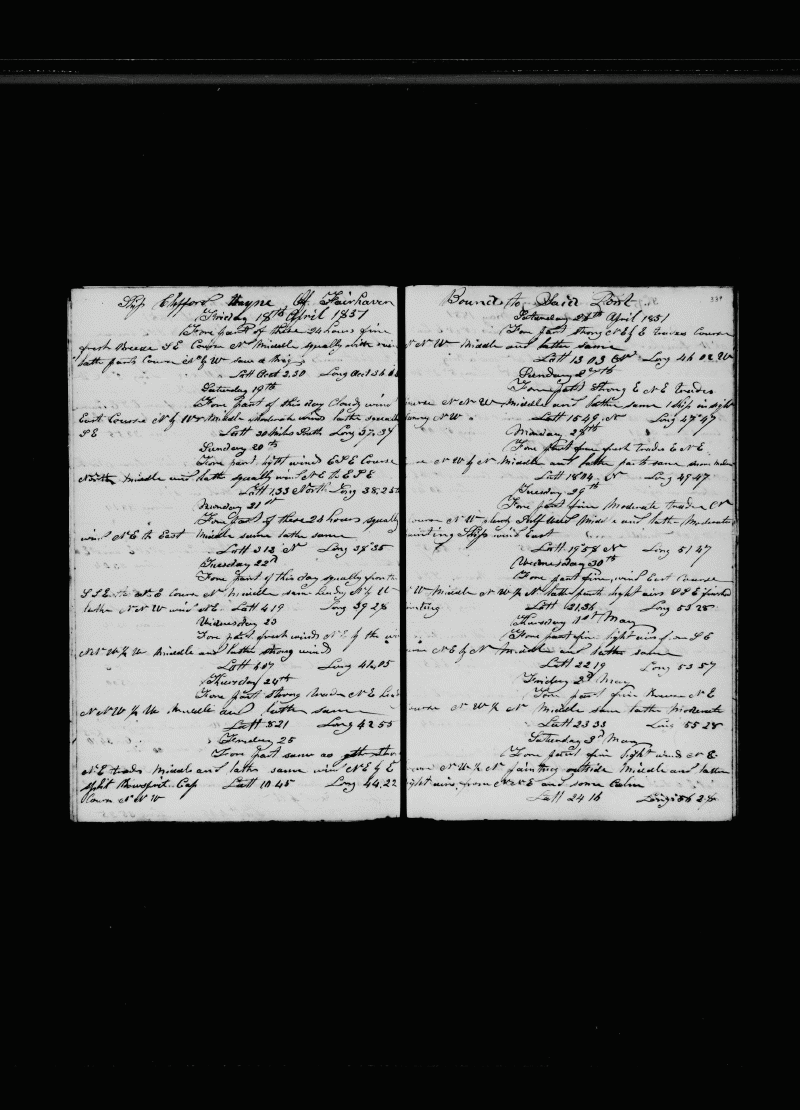 Ship Clifford Wayne Of Fairhaven
Friday 18th April 1851
Fore part of these 24 hours fine
fresh Breeze S E Course N Middle squally with rain
latter parts Course N & W saw a Ship
Latt Acct 2.30 Long Acct 36
Saturday 19th
Fore part of this day Cloudy wind
East Course N by W Middle wind latter squally
S E Latt 30 Miles South Long 37.37
Sunday 20th
Fore part light wind E S E Course
North Middle and latter squally wind N E to E S E
Latt 1.33 North Long 38.25
Monday 21st
Fore part of these 24 hours squally
wind N E to East Middle same latter same
Latt 3 12 N Long 38 35
Tuesday 22d
Fore part of this day squally from the
S S E to N E Course N Middle same N by W
latter N N W wind N E Latt 4 19 Long 39 28
Wednesday 23
Fore part fresh winds N E by the
N N W ½ W Middle and latter strong wind
Latt 6 07 Long 41.05
Thursday 24th
Fore part strong trades N E
N N W ½ W Middle and latter same
Latt 8 21 Long 42 55
Friday 25
Fore part same as
N E trades Middle and latter same wind N E by E
split Cap Latt 10 45 Long 44.22
N N W
Bound to Said Port 339
Saturday 26th April 1851
Fore part strong N E by E trades Course
N N W Middle and latter same
Latt 13 03 N Long 46 02 W
Sunday 27th
Fore part strong E N E trades
Course N N W Middle and latter same 1 Ship in sight
N W Latt 15 49 N Long 47 47
Monday 28th
Fore part fine fresh trades E N E
N W by N Middle and latter parts same
Latt 18 04 N Long 49 47
Tuesday 29th
Fore part fine Moderate trades
Course N W Middle and latter Moderate
painting Ship wind East
Latt 19 58 N Long 51 47
Wednesday 30th
Fore part fine, wind East Course
N W Middle N W ½ N latter parts light airs S S E finished
painting Latt 21,36 Long 53 28
Thursday 1st May
Fore part fine light airs from S E
N E by N Middle and latter same
Latt 22 19 Long 53 57
Friday 2d May
Fore part fine Breeze N E
Course N W ½ N Middle same latter Moderate
Latt 23 33 Long 55 28
Saturday 3d May
Fore part fine light winds N E
N W ½ N painting outside Middle and latter
light airs from N N E and some Calm
Latt 24 16 Long 56 28